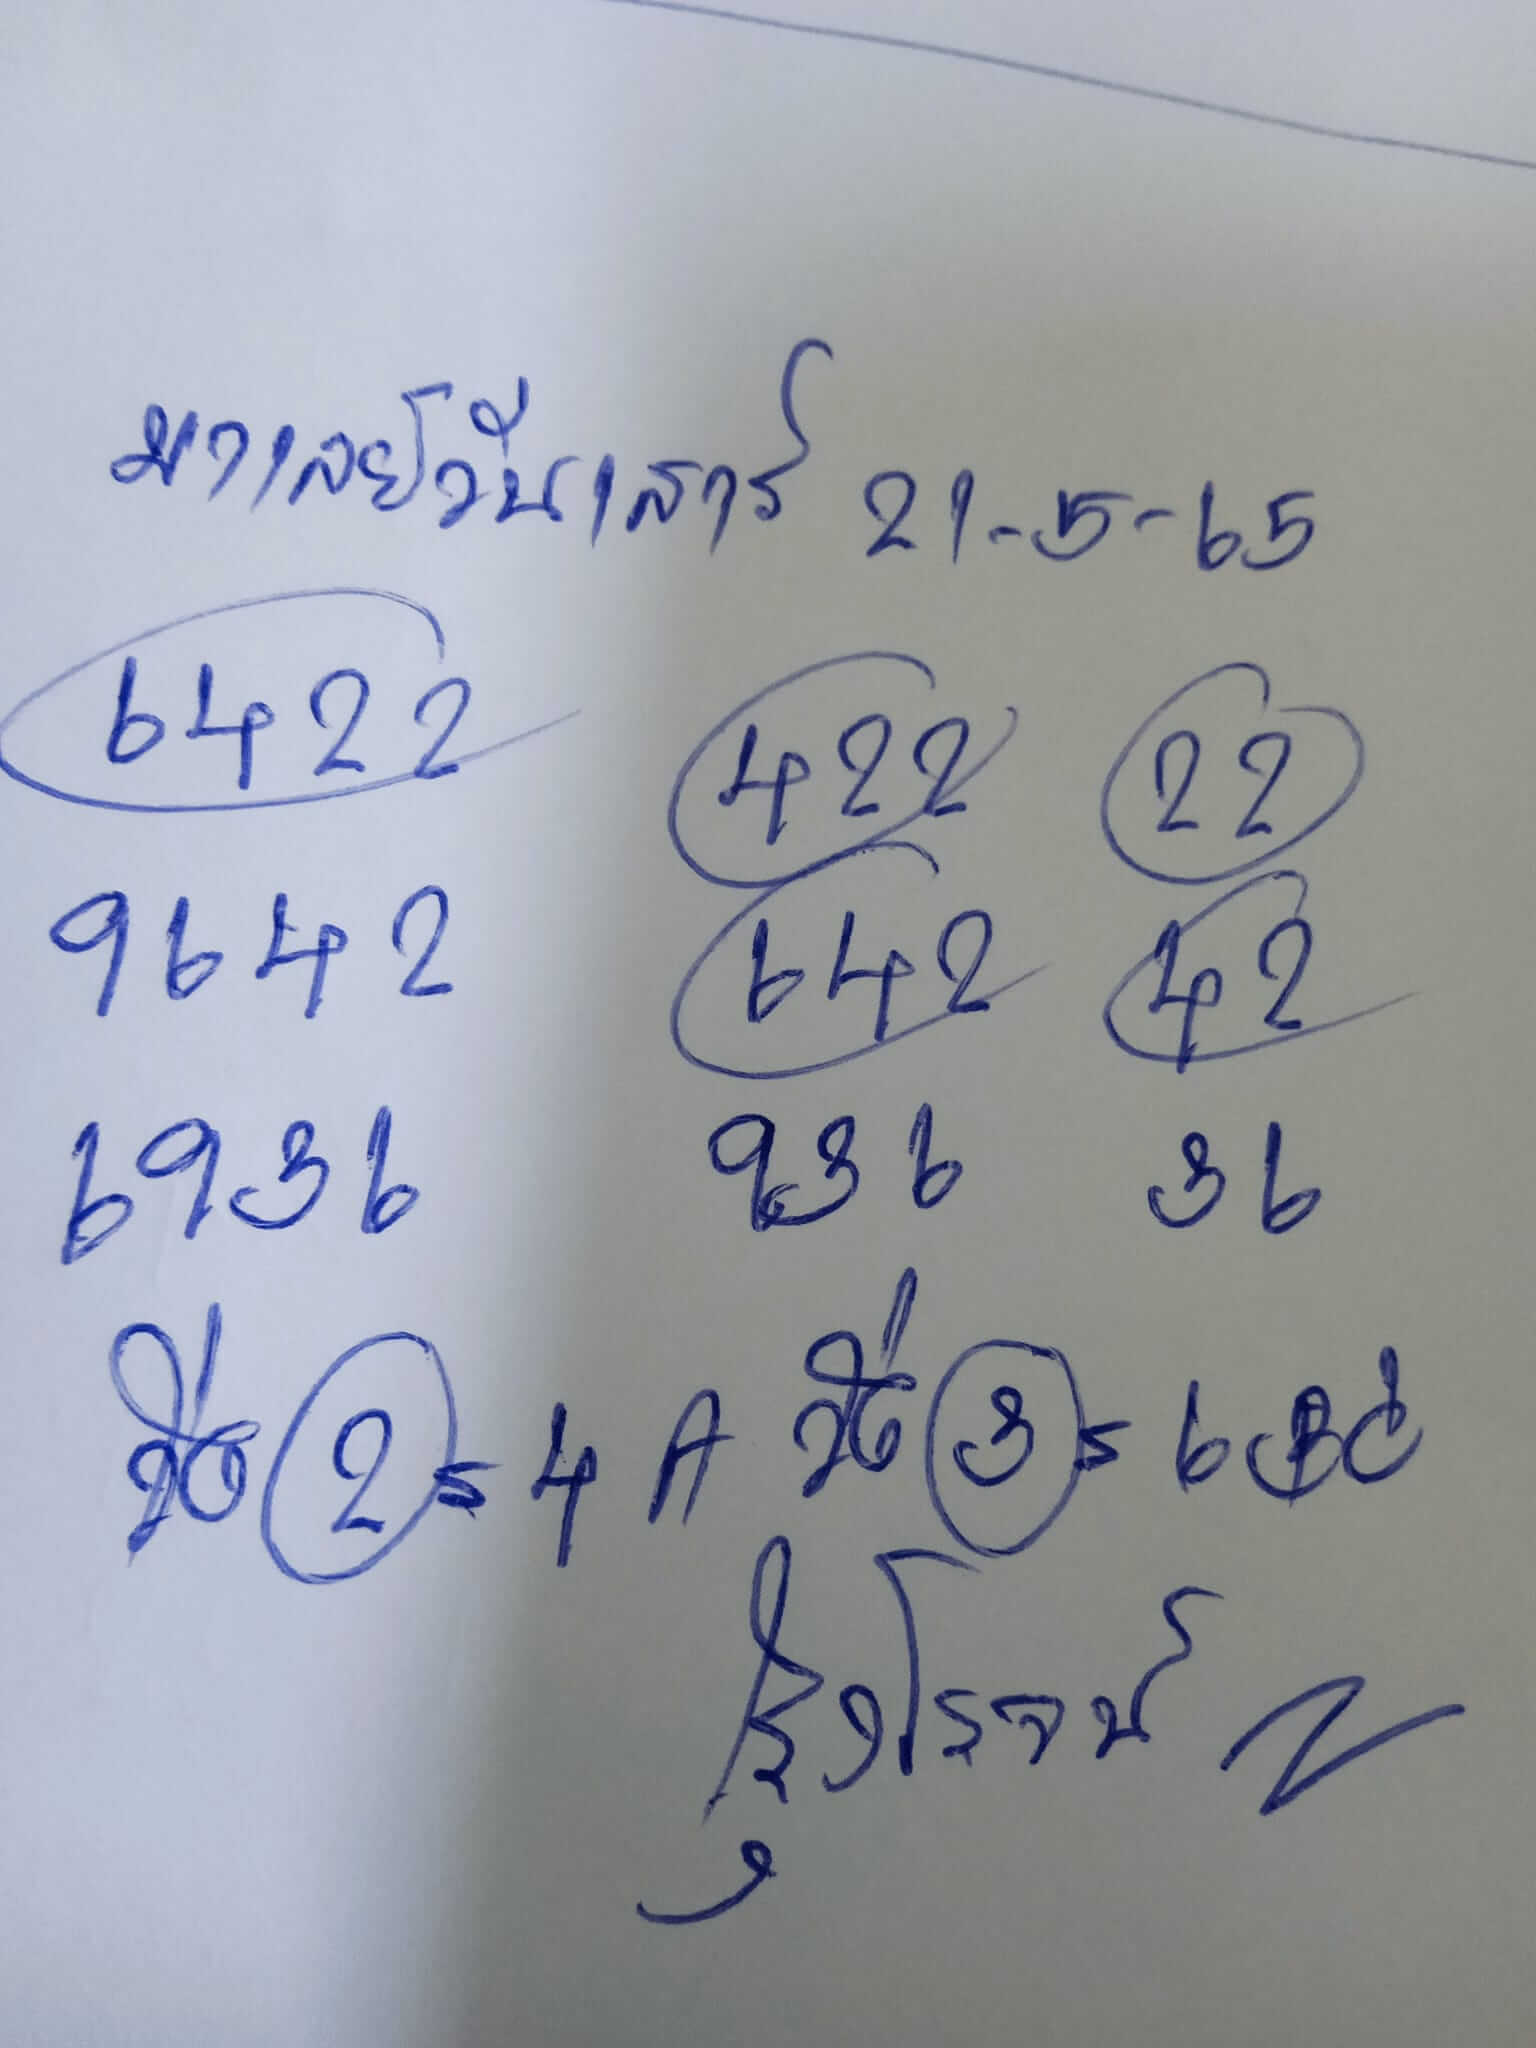 มาเลย์วันเสาร์ 21-5-65
6422 422 22
9642 642 42
6936 936 36
2 = 4 A 3 = 6
รุ่งโรจน์